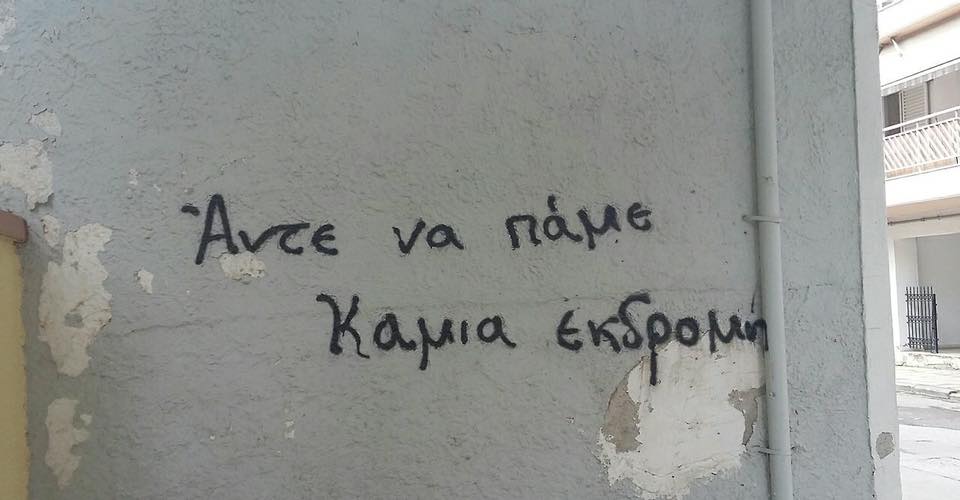 Άντε να πάμε
Καμια εκδρομή